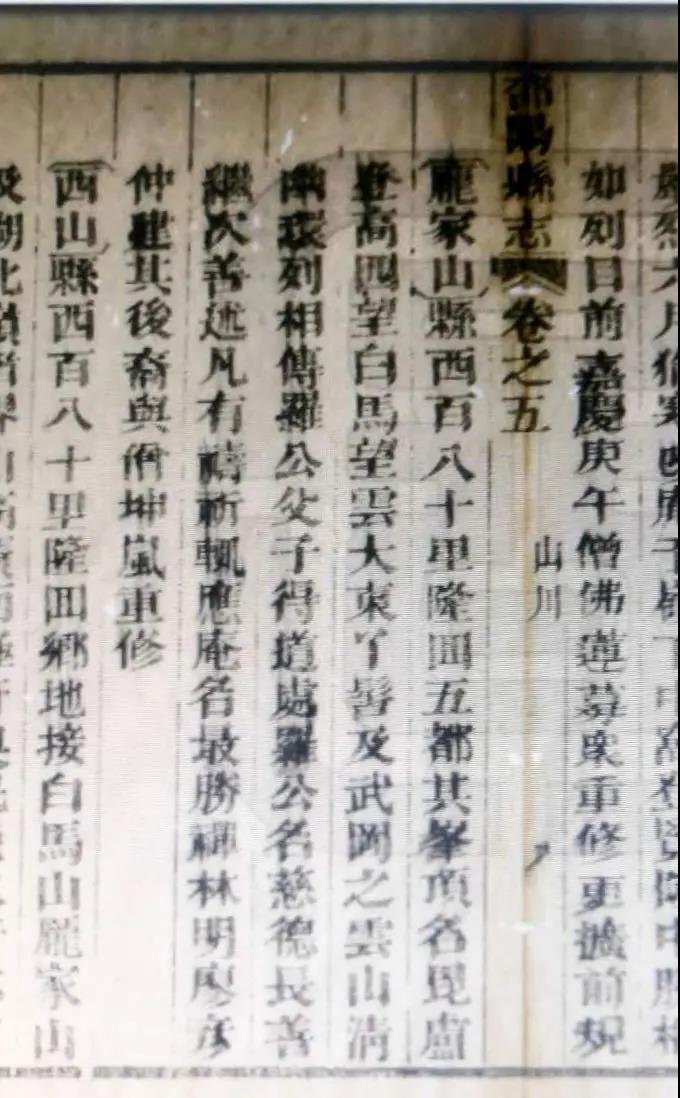 六月猶寒
如列目前嘉慶庚午僧佛蓮募衆重修更擴前規
邵陽縣志 卷之五 山川
龐家山 縣西百八十里隆回五都其峯頂名毘盧
登高四望白馬望雲大東丫髻及武岡之雲山清
幽環列相傳羅公父子得道處羅公名慈德長善
繼次善述凡有禱祈輒應庵名最勝禪林明廖彦
仲建其後裔與僧坤嵐重修
西山 縣西百八十里隆回鄉地接白馬山龐家山